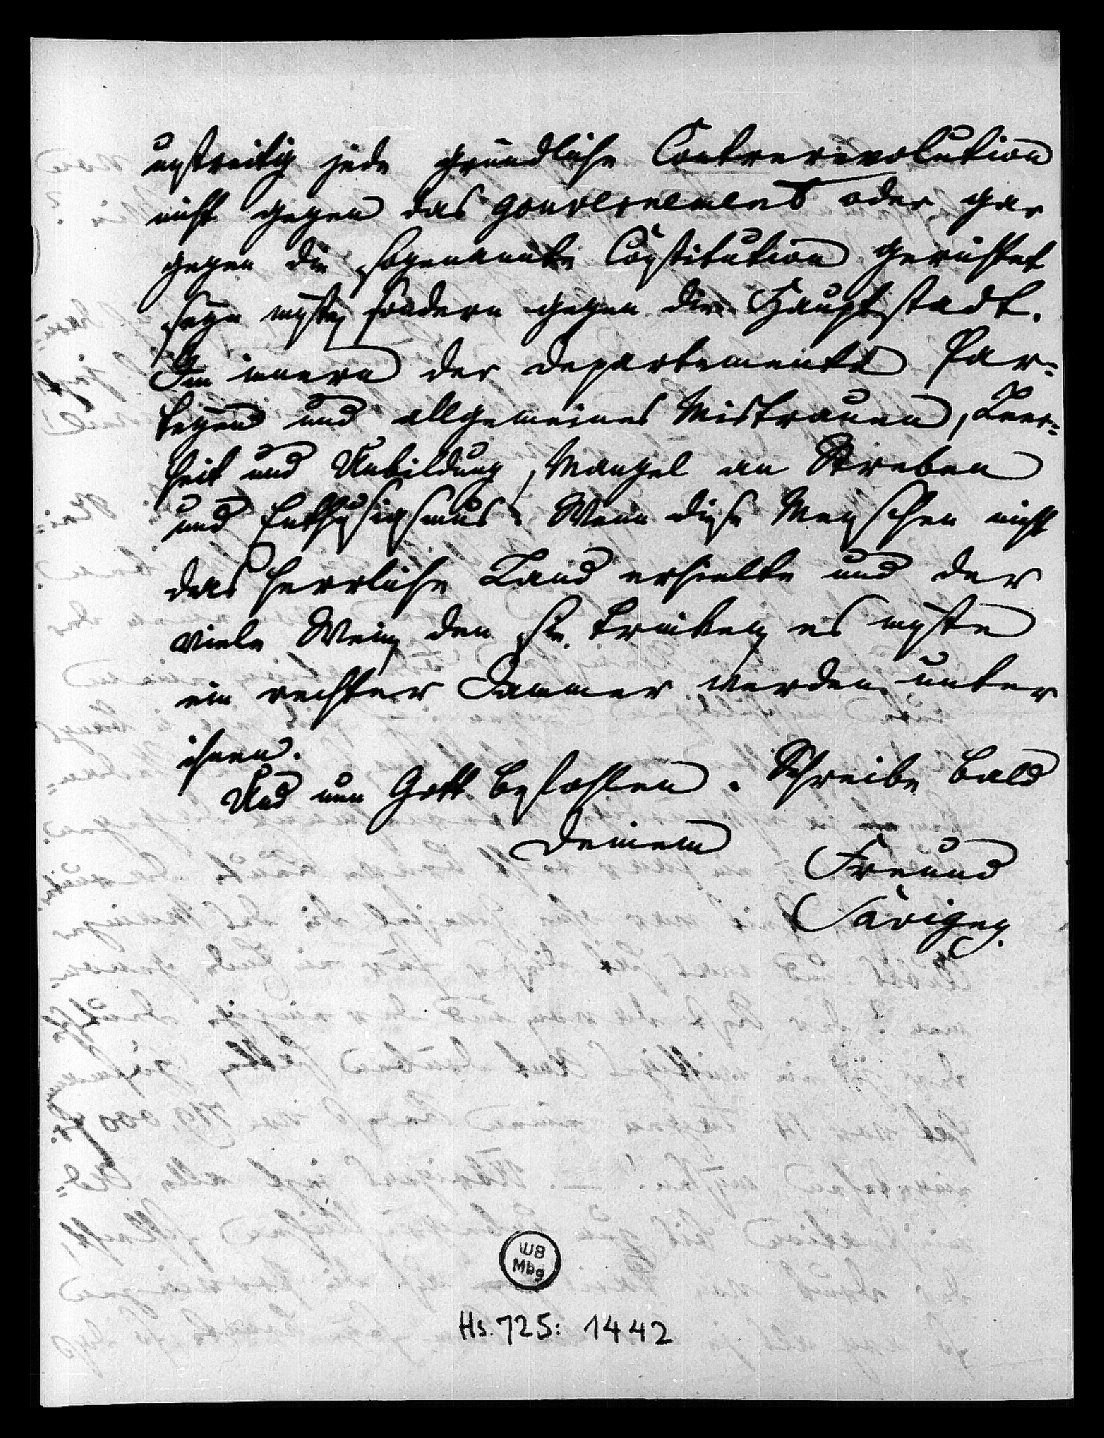 unstreitig jede gründliche Contrerevolution
nicht gegen das gouvernement oder gar
gegen die sogenannte Constitution gerichtet
seyn müste, sondern gegen die Hauptstadt.
Im innern der departements Par-
teyen und allgemeines Mistrauen, Leer-
heit und Unbildung, Mangel an Streben
und Enthusiasmus. Wenn diese Menschen nicht
das herrliche Land erhielte und der
viele Wein, den sie trinken, es müste
ein rechter Jammer werden unter
ihnen.
Und nun Gott befohlen. Schreibe bald
deinem Freund
Savigny.
WB
Mbg
Hs. 725: 1442